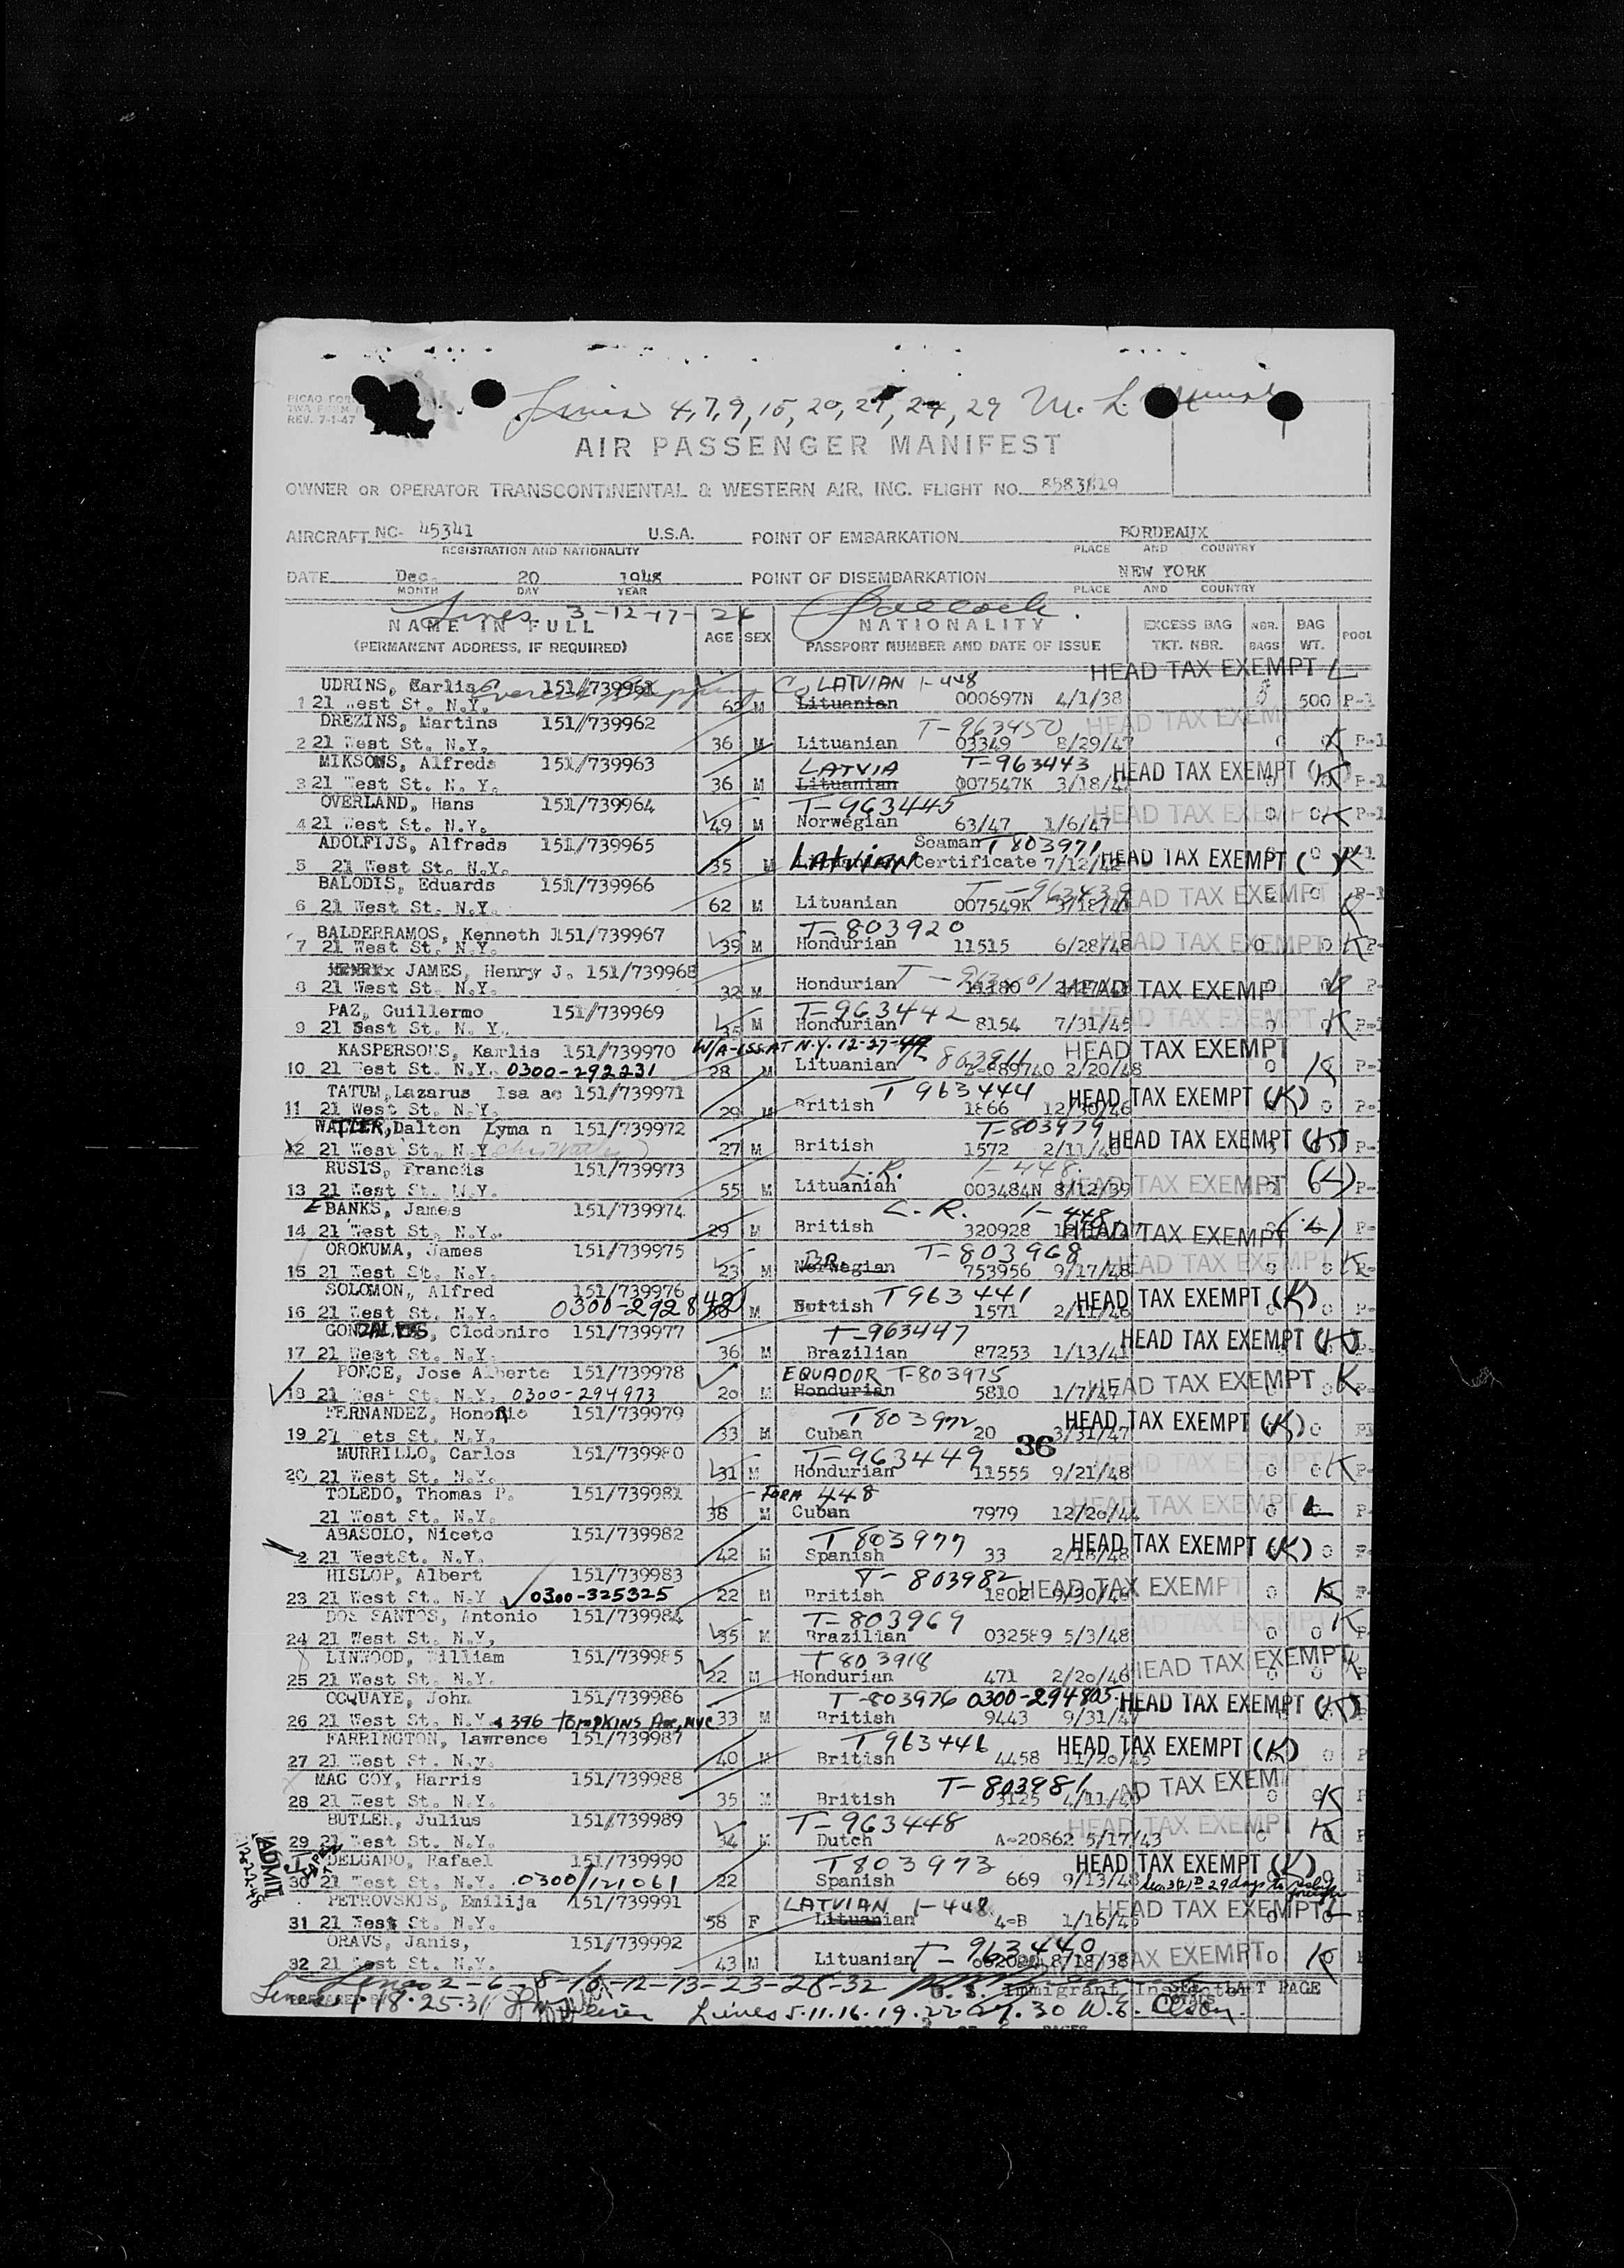 PICAO FOR
TWA FORM
REV. 7-1-47
Lines 4,7,9,15,20,21,24,29 M. L.
AIR PASSENGER MANIFEST
OWNER OR OPERATOR TRANSCONTINENTAL & WESTERN AIR, INC. FLIGHT NO. 8583819
AIRCRAFT NC- 45341 U.S.A. POINT OF EMBARKATION BORDEAUX
REGISTRATION AND NATIONALITY PLACE AND COUNTRY
DATE Dec. 20 1948 POINT OF DISEMBARKATION NEW YORK
MONTH DAY YEAR PLACE AND COUNTRY
Lines 3-12-17-26
NAME IN FULL AGE SEX NATIONALITY EXCESS BAG NBR. BAG POOL
(PERMANENT ADDRESS, IF REQUIRED) PASSPORT NUMBER AND DATE OF ISSUE TKT. NBR. BAGS WT.
HEAD TAX EXEMPT L
UDRINS, Karlis 151/739961 LATVIAN 1-448
1 21 West St. N.Y. 62 M Lituanian 000697N 4/1/38 500 P-1
DREZINS, Martins 151/739962 T-963450 HEAD TAX EXEMPT
2 21 West St. N.Y. 36 M Lituanian 03349 8/29/47 0 0 K P-1
MIKSONS, Alfreds 151/739963 LATVIA T-963443 HEAD TAX EXEMPT (K)
3 21 West St. N. Y. 36 M Lituanian 007547K 3/18/4 P-1
OVERLAND, Hans 151/739964 T-963445 HEAD TAX EXEMPT
4 21 West St. N.Y. 49 M Norwegian 63/47 1/6/47 0 0 K P-1
ADOLFIJS, Alfreds 151/739965 Seaman T803971
5 21 West St. N.Y. 35 M LATVIAN Certificate 7/12/42 HEAD TAX EXEMPT ( ) K
BALODIS, Eduards 151/739966 T-963439 HEAD TAX EXEMPT
6 21 West St. N.Y. 62 M Lituanian 007549K 3/18/4
BALDERRAMOS, Kenneth 151/739967 T-803920
7 21 West St. N.Y. 39 M Hondurian 11515 6/28/48 HEAD TAX EXEMPT 0 0 K P-
JAMES, Henry J. 151/739968
8 21 West St. N.Y. 32 M Hondurian HEAD TAX EXEMP 0 P-
PAZ, Guillermo 151/739969 T-963442
9 21 West St. N. Y. 35 M Hondurian 8154 7/31/45 0 K P-
KASPERSONS, Karlis 151/739970 W/A-ISS. AT N.Y. 12-27-49 HEAD TAX EXEMPT
10 21 West St. N.Y. 0300-292231 28 M Lituanian 2/20/48 0 K P-1
TATUM, Lazarus Isa ac 151/739971 T 963444 HEAD TAX EXEMPT (K)
11 21 West St. N.Y. 29 M British 1866 12/30/46 0 P-
WATLER, Dalton Lyma n 151/739972 T-803979 HEAD TAX EXEMPT (K)
12 21 West St. N.Y. 27 M British 1572 2/11/46 P-
RUSIS, Francis 151/739973 L.R. 1-448.
13 21 West St. N.Y. 55 M Lituanian 003484N 8/12/39 HEAD TAX EXEMPT (L) P-
EBANKS, James 151/739974 L.R. 1-448
14 21 West St. N.Y. 29 M British 320928 HEAD TAX EXEMPT (L) P-
OROKUMA, James 151/739975 BR. T-803968
15 21 West St. N.Y. 23 M Norwegian 753956 9/17/48 HEAD TAX EXEMPT 0 0 K
SOLOMON, Alfred 151/739976 T963441 HEAD TAX EXEMPT (K)
16 21 West St. N.Y. 0300-292842 30 M British 1571 2/11/46 0 P-
GONZALVES, Clodoniro 151/739977 T-963447 HEAD TAX EXEMPT (K)
17 21 West St. N.Y. 36 M Brazilian 87253 1/13/41
PONCE, Jose Alberto 151/739978 EQUADOR T-803975
18 21 West St. N.Y. 0300-294973 20 M Hondurian 5810 1/7/47 HEAD TAX EXEMPT 0 K P-
FERNANDEZ, Honorio 151/739979 T803972 HEAD TAX EXEMPT (K)
19 21 ets St. N.Y. 33 M Cuban 20 3/31/47 0
36
MURRILLO, Carlos 151/739980 T-963449 HEAD TAX EXEMPT
20 21 West St. N.Y. 31 M Hondurian 11555 9/21/48 0 0 K P-
TOLEDO, Thomas P. 151/739981 FORM 448 HEAD TAX EXEMPT
21 West St. N.Y. 38 M Cuban 7979 12/20/44 0 L P-
ABASOLO, Niceto 151/739982 T803977 HEAD TAX EXEMPT (K)
2 21 WestSt. N.Y. 42 M Spanish 33 2/18/48 0
HISLOP, Albert 151/739983 T-803982 HEAD TAX EXEMPT
23 21 West St. N.Y. 0300-325325 22 M British 1802 9/30/46 0 K
DOS SANTOS, Antonio 151/739984 T-803969 K
24 21 West St. N.Y, 35 M Brazilian 032589 5/3/48 0 0 P-
LINWOOD, William 151/739985 T803918 HEAD TAX EXEMPT K
25 21 West St. N.Y. 22 M Hondurian 471 2/20/46 0 0 P
OCQUAYE, John 151/739986 T-803976 0300-294805 HEAD TAX EXEMPT (K)
26 21 West St. N.Y. 396 TOMPKINS Ave, NYC 33 M British 9443 9/31/47
FARRINGTON, Lawrence 151/739987 T963446 HEAD TAX EXEMPT (K)
27 21 West St. N.y. 40 M British 4458 11/20/45 0 P
MAC COY, Harris 151/739988 T-803981 HEAD TAX EXEMPT
28 21 West St. N.Y. 35 M British 3125 0 K
BUTLER, Julius 151/739989 T-963448 HEAD TAX EXEMPT
29 21 West St. N.Y. 34 M Dutch A-20862 5/17/43 0 K P
DELGADO, Rafael 151/739990 T803973 HEAD TAX EXEMPT (K)
30 21 West St. N.Y. 0300/121061 22 Spanish 669 9/13/48 29 days to
ADMIT
PETROVSKIS, Emilija 151/739991 LATVIAN 1-448 HEAD TAX EXEMPT L
31 21 West St. N.Y. 58 F Lituanian 4-B 1/16/45 0 0
ORAVS, Janis, 151/739992 T-963440
32 21 West St. N.Y. 43 M Lituanian 8/18/38 TAX EXEMPT 0 K
Lines 2-6-8-10-12-13-23-28-32 U. S. Immigrant Inspector LAST PAGE
Lines 1.18.25.31 Lines 5.11.16.19.22.27.30 W.E. Olson